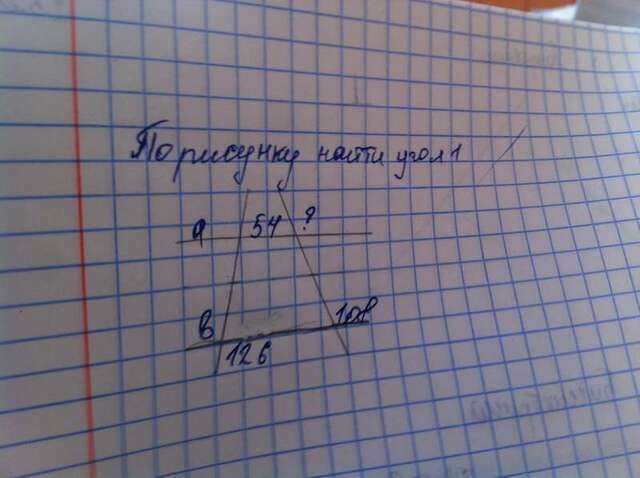 По рисунку найти угол 1
а 54 ?
в 108
126